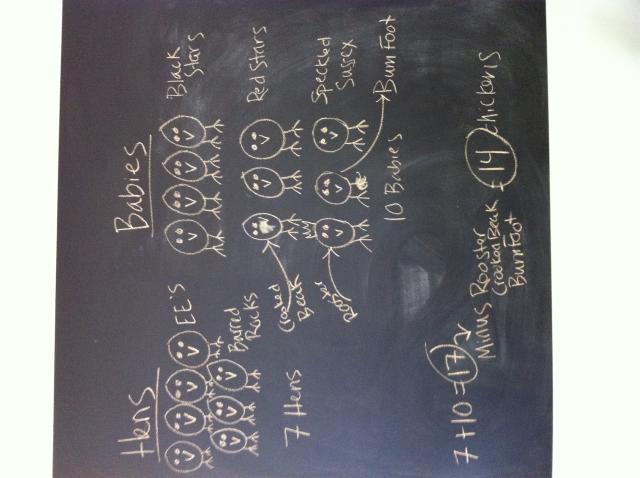 Hens
EE's
Barred
Rocks
7 Hens
Babies
Black
Stars
Red Stars
Crooked
Beak
Speckled
Sussex
Bum Foot
10 Babies
7+10=17
Minus Rooster
Crooked Beak
Bum Foot
= 14 chickens